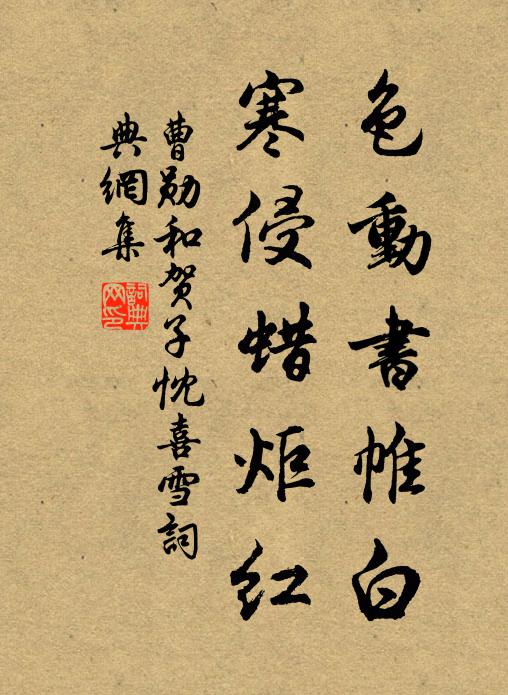 色動書帷白
寒侵蜡炬红
曹勋和贺子忱喜雪詞
典網集
詞典网印